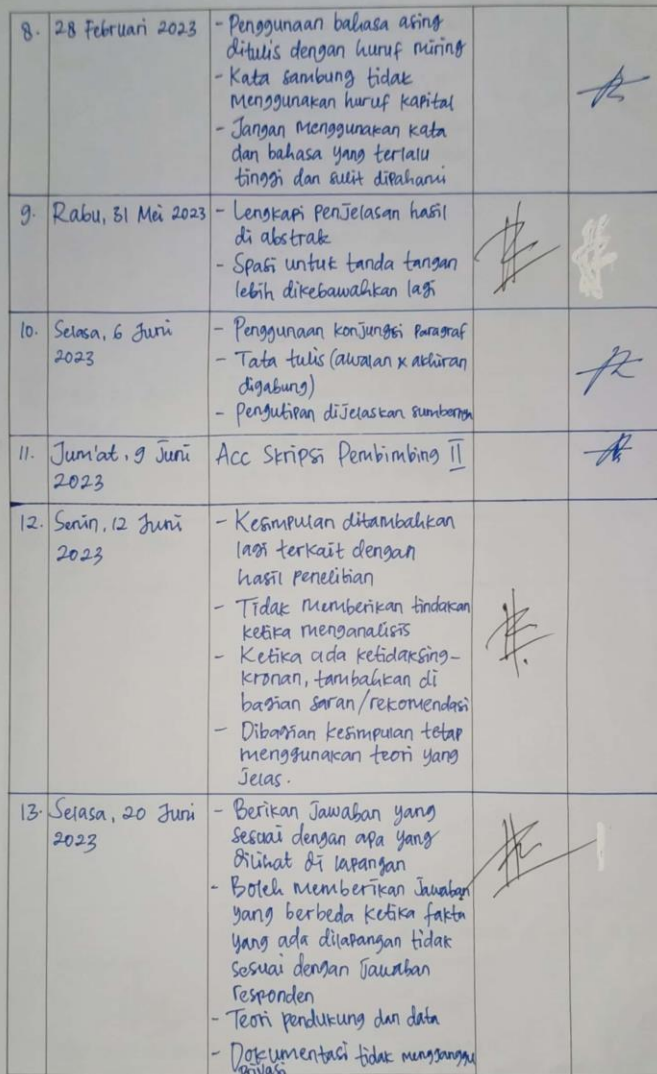 8. 28 Februari 2023 - Penggunaan bahasa asing
ditulis dengan huruf miring
- Kata sambung tidak
menggunakan huruf kapital
- Jangan menggunakan kata
dan bahasa yang terlalu
tinggi dan sulit dipahami
9. Rabu, 31 Mei 2023 - Lengkapi penjelasan hasil
di abstrak
- Spasi untuk tanda tangan
lebih dikebawahkan lagi
10. Selasa, 6 Juni - Penggunaan konjungsi Paragraf
2023 - Tata tulis (awalan x akhiran
digabung)
- Pengutipan dijelaskan sumbernya
11. Jum'at, 9 Juni Acc Skripsi Pembimbing II
2023
12. Senin, 12 Juni - Kesimpulan ditambahkan
2023 lagi terkait dengan
hasil penelitian
- Tidak memberikan tindakan
ketika menganalisis
- Ketika ada ketidaksing-
kronan, tambahkan di
bagian saran/rekomendasi
- Dibagian kesimpulan tetap
menggunakan teori yang
jelas.
13. Selasa, 20 Juni - Berikan Jawaban yang
2023 sesuai dengan apa yang
dilihat di lapangan
- Boleh memberikan Jawaban
yang berbeda ketika fakta
yang ada dilapangan tidak
sesuai dengan Jawaban
responden
- Teori pendukung dan data
- Dokumentasi tidak mengganggu
privasi